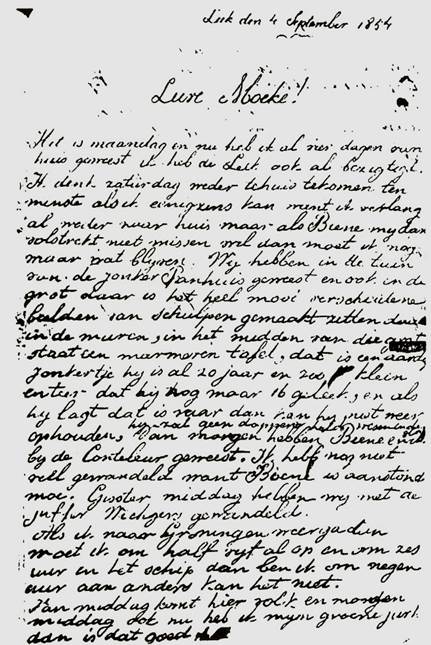 Leek den 4 September 1854
Lieve Moeke!
Het is maandag en nu heb ik al vier dagen van
huis geweest ik heb de Leek ook al bezigtigd.
Ik denk zaturdag weder tehuis tekomen ten
minste als ik eenigzins kan want ik verlang
al weder naar huis maar als Biene my dan
volstrekt niet missen wil dan moet ik nog
maar wat blyven. Wy hebben in de tuin
van de jonker Panhuis geweest en ook in de
grot daar is het heel mooi verscheidene
beelden van schulpen gemaakt zitten daar
in de muren, in het midden van die grot
staat een marmeren tafel, dat is een aardig
jonkertje hy is al 20 jaar en zoo klein
en teer dat hy nog maar 16 gelekt, en als
hy lagt dat is naar dan kan hy niet weer
ophouden, Van morgen hebben Biene en ik
by de Conteleur geweest. Ik heb nog niet
veel gewandeld want Biene is aanstond
moe. Gister middag hebben wy met de
juffer Wichgers gewandeld.
Als ik naar Groningen weerga dan
moet ik om half vyf al op en om zes
uur en het schip dan ben ik om negen
uur aan anders kan het niet.
Van middag komt hier volk en morgen
middag ook nu heb ik myn groene jurk
aan is dat goed